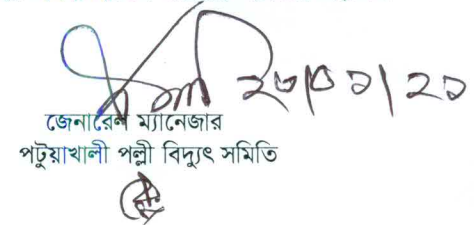 ২৩/০১/২১
জেনারেল ম্যানেজার
পটুয়াখালী পল্লী বিদ্যুৎ সমিতি